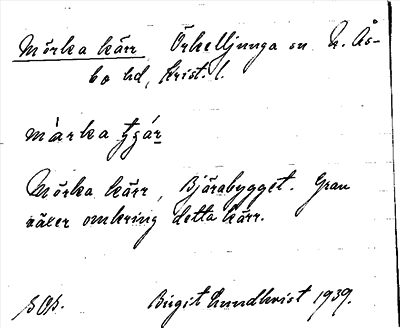 Mörka kärr Örkelljunga sn N. Ås-
bo hd, Krist. l.
mȧrka
Mörka kärr, Bjärabygget. Gran
växer omkring detta kärr.
Birgit Lundkvist 1939.